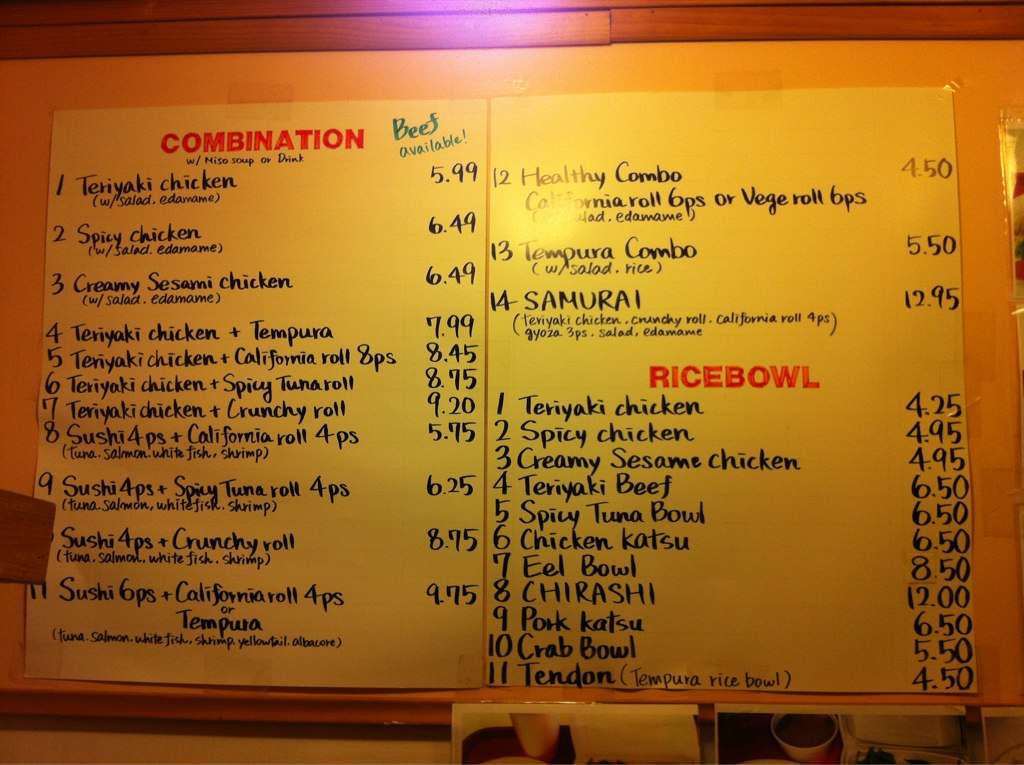 COMBINATION
Beef
available!
w/ Miso soup or Drink
1 Teriyaki chicken 5.99
(w/salad. edamame)
2 Spicy chicken 6.49
(w/salad. edamame)
3 Creamy Sesami chicken 6.49
(w/salad. edamame)
4 Teriyaki chicken + Tempura 7.99
5 Teriyaki chicken + California roll 8ps 8.45
6 Teriyaki chicken + Spicy Tuna roll 8.75
7 Teriyaki chicken + Crunchy roll 9.20
8 Sushi 4ps + California roll 4ps 5.75
(tuna. salmon. white fish, shrimp)
9 Sushi 4ps + Spicy Tuna roll 4ps 6.25
(tuna. salmon, white fish. shrimp)
Sushi 4ps + Crunchy roll 8.75
(tuna. salmon. white fish. shrimp)
11 Sushi 6ps + California roll 4ps 9.75
or
Tempura
(tuna. salmon. white fish, shrimp. yellowtail. albacore)
12 Healthy Combo 4.50
California roll 6ps or Vege roll 6ps
salad, edamame)
13 Tempura Combo 5.50
(w/salad. rice)
14 SAMURAI 12.95
(teriyaki chicken. crunchy roll. California roll 4ps)
gyoza 3ps. salad, edamame
RICEBOWL
1 Teriyaki chicken 4.25
2 Spicy chicken 4.95
3 Creamy Sesame chicken 4.95
4 Teriyaki Beef 6.50
5 Spicy Tuna Bowl 6.50
6 Chicken katsu 6.50
7 Eel Bowl 8.50
8 CHIRASHI 12.00
9 Pork katsu 6.50
10 Crab Bowl 5.50
11 Tendon (Tempura rice bowl) 4.50